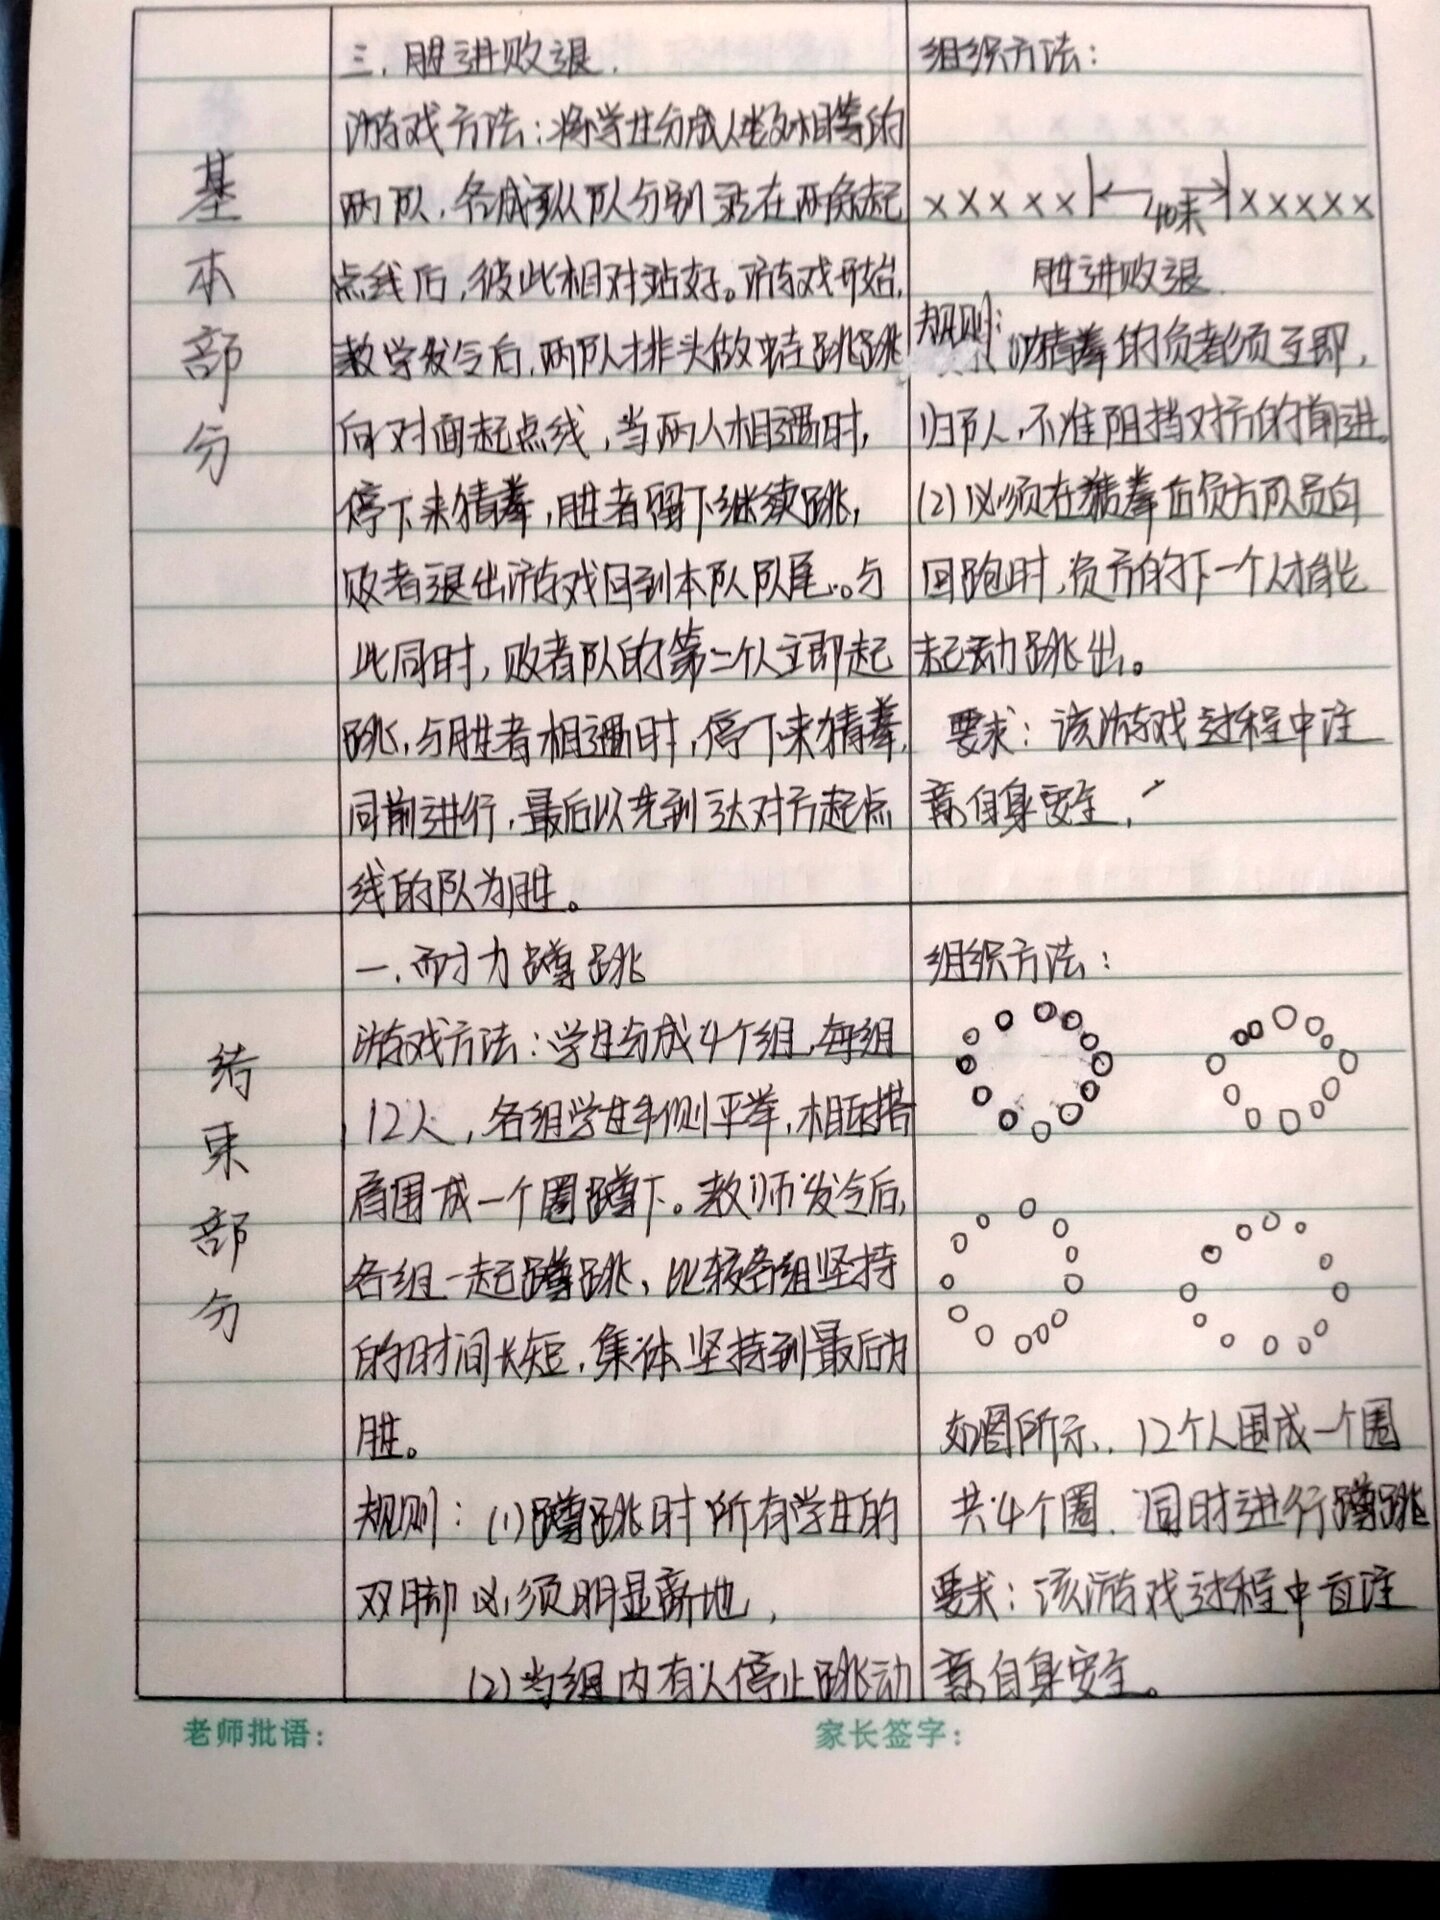 基本部分
三、胜进败退.
游戏方法：将学生分成人数相等的
两队，各成纵队分别站在两条起
点线后，彼此相对站好。游戏开始,
教学发令后，两队排头做蛙跳跳
向对面起点线，当两人相遇时,
停下来猜拳，胜者留下继续跳,
败者退出游戏回到本队队尾。与
此同时，败者队的第二个人立即起
跳，与胜者相遇时，停下来猜拳,
同前进行，最后以先到达对方起点
线的队为胜。
组织方法：
x x x x x 40米 x x x x x
胜进败退
规则：(1)猜拳的负者须立即,
归队，不准阻挡对方的前进。
(2)必须在猜拳后负方队员向
回跑时，负方的下一个人才能
起动跳出。
要求：该游戏过程中注
意自身安全.
结束部分
一、耐力蹲跳
游戏方法：学生分成4个组，每组
12人，各组学生手侧平举，相互搭
肩围成一个圈蹲下。教师发令后,
各组一起蹲跳，比较各组坚持
的时间长短，集体坚持到最后为
胜。
规则：(1)蹲跳时所有学生的
双脚必须明显离地,
(2)当组内有人停止跳动
组织方法：
如图所示，12个人围成一个圈
共4个圈．同时进行蹲跳
要求：该游戏过程中注
意自身安全。
老师批语：
家长签字：